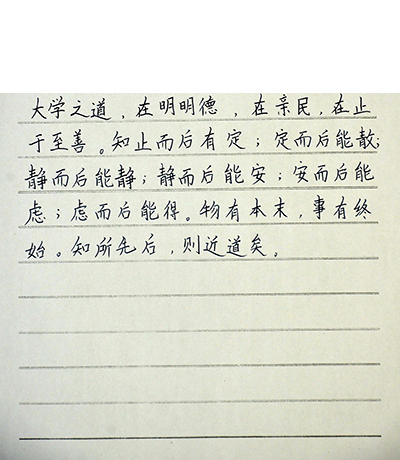 大学之道,在明明德,在亲民,在止
于至善。知止而后有定;定而后能散;
静而后能静;静而后能安;安而后能
虑;虑而后能得。物有本末,事有终
始。知所先后,则近道矣。